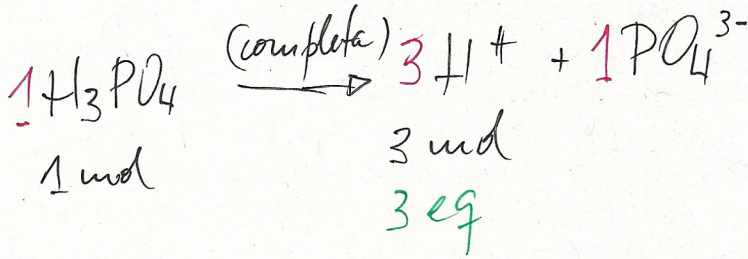 1 H₃PO₄ (completa) → 3 H⁺ + 1 PO₄³⁻
1 mol 3 mol
3 eq